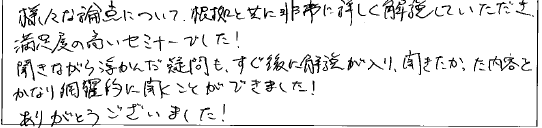 様々な論点について、根拠と共に非常に詳しく解説していただき、
満足度の高いセミナーでした!
聞きながら浮かんだ疑問も、すぐ後に解説が入り、聞きたかった内容を
かなり網羅的に聞くことができました!
ありがとうございました!